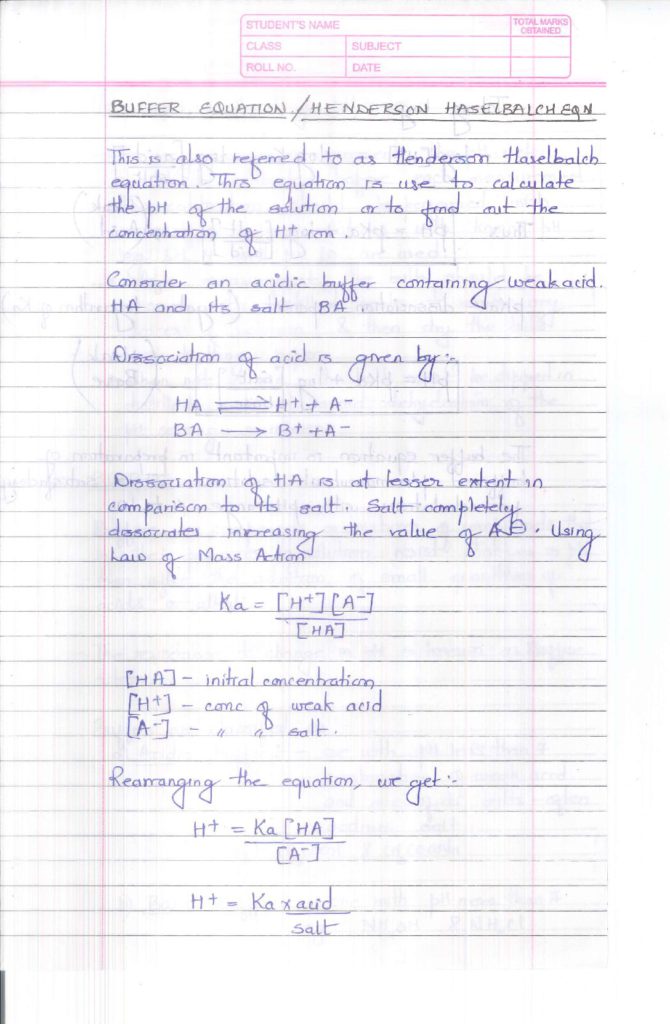 STUDENT'S NAME
TOTAL MARKS OBTAINED
CLASS
SUBJECT
ROLL NO.
DATE
BUFFER EQUATION / HENDERSON HASELBALCH EQN
This is also referred to as Henderson Haselbalch
equation. This equation is use to calculate
the pH of the solution or to find out the
concentration of H+ ion.
Consider an acidic buffer containing weak acid.
HA and its salt BA.
Dissociation of acid is given by :-
HA ⇌ H+ + A-
BA → B+ + A-
Dissociation of HA is at lesser extent in
comparison to its salt. Salt completely
dissociates increasing the value of A⊖. Using
Law of Mass Action
Ka = [H+] [A-]
[HA]
[HA] - initial concentration
[H+] - conc of weak acid
[A-] - " " salt.
Rearranging the equation, we get :-
H+ = Ka [HA]
[A-]
H+ = Ka x acid
salt